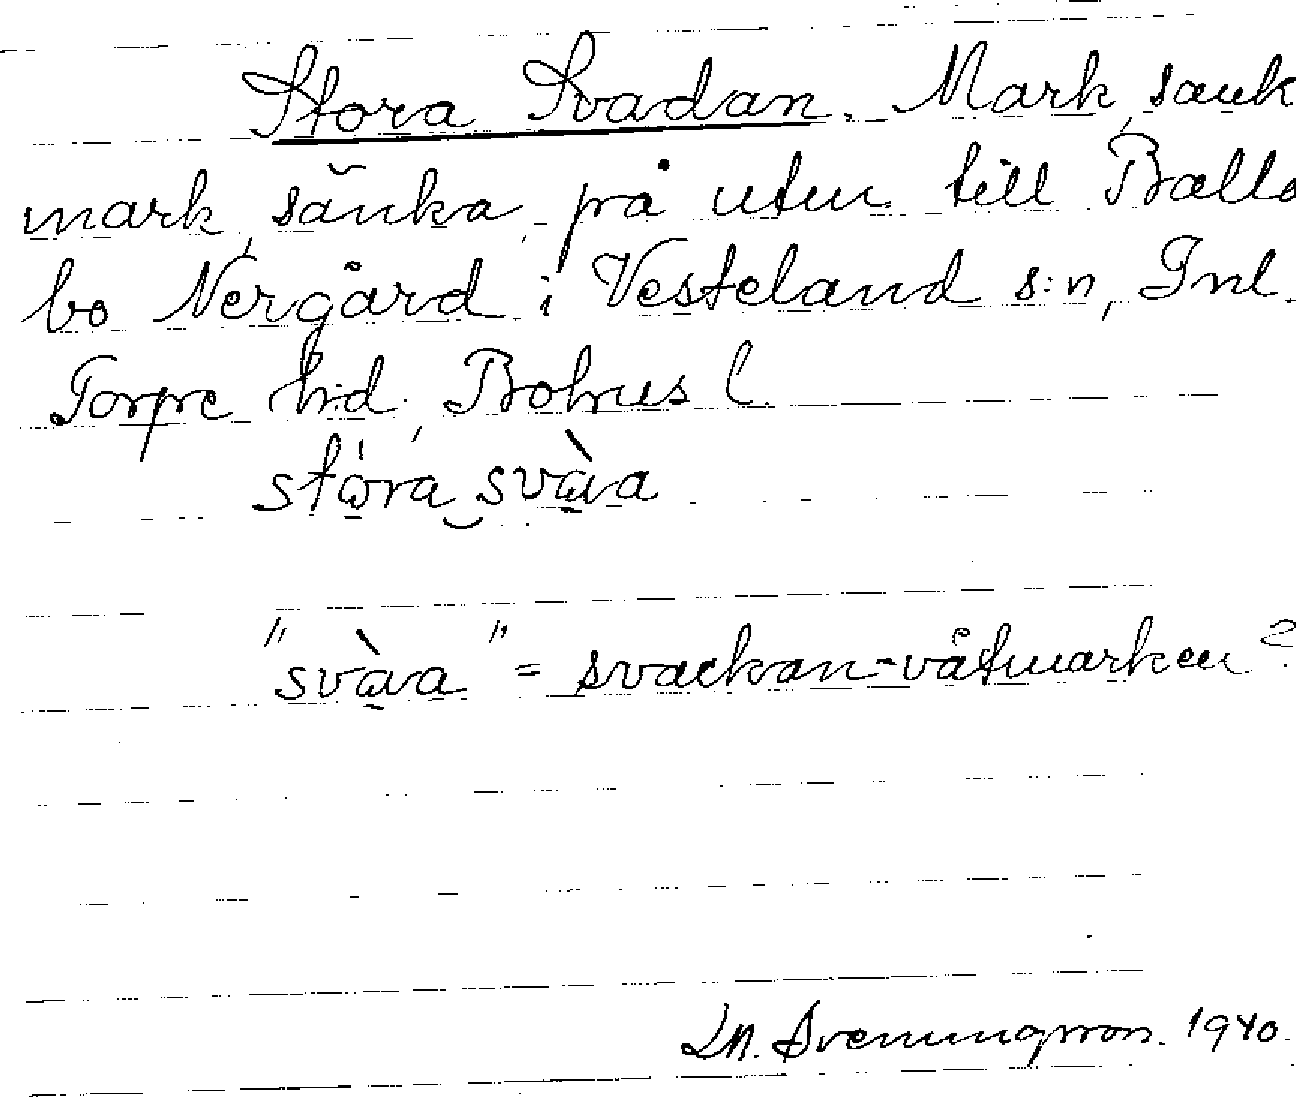 Stora Svadan. Mark, sank
mark, sänka, på utm. till Balla
bo Nergård i Vesteland s:n, Inl.
Torpe h:d, Bohus l.
stó̱ra‿svà̱a
"svà̱a" = svackan-våtmarken?
Lm. Svenningsson. 1940.